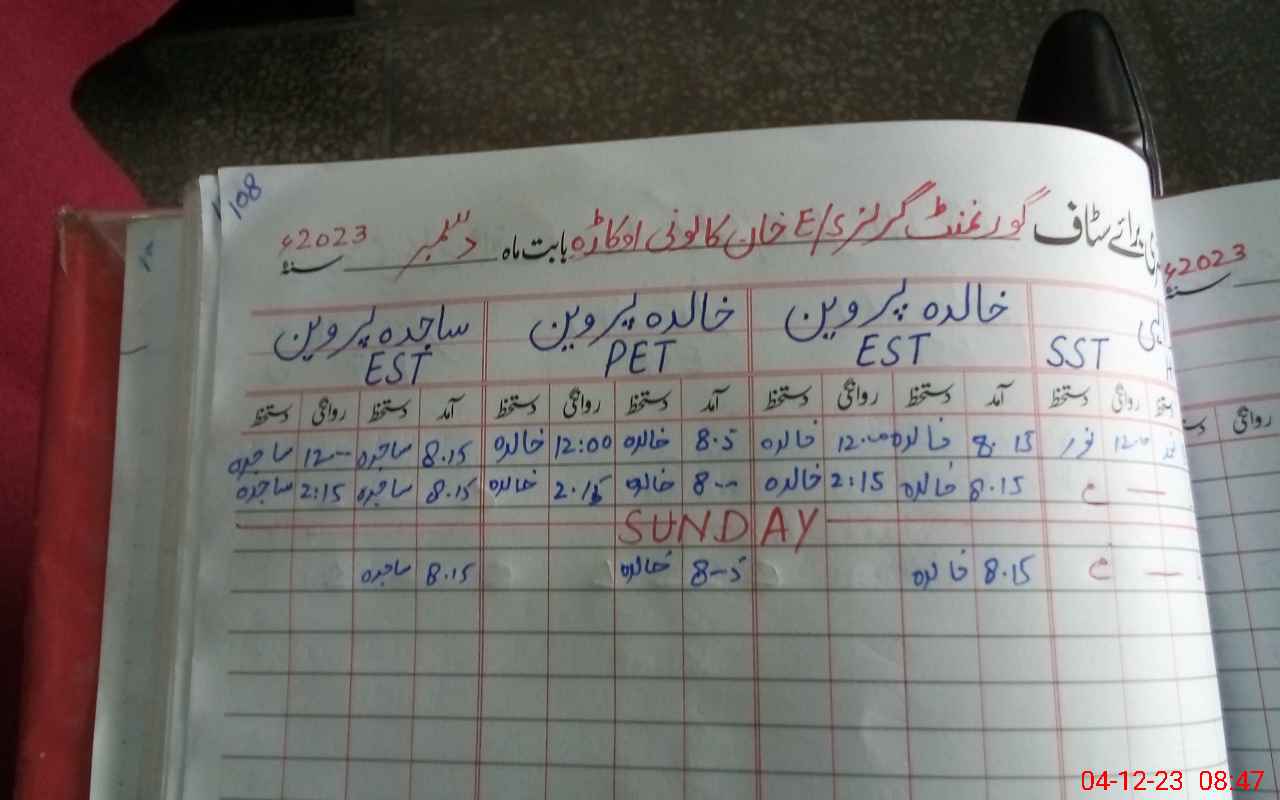 108
برائے سٹاف گورنمنٹ گرلز E/S خان کالونی اوکاڑہ بابت ماہ دسمبر سنہ 2023ء
سنہ 2023ء
خالدہ پروین خالدہ پروین ساجدہ پروین
SST EST PET EST
دستخط روانگی دستخط آمد دستخط روانگی دستخط آمد دستخط روانگی دستخط آمد دستخط روانگی دستخط
روانگی
12.00 نور 8.15 خالدہ 12.00 خالدہ 8.5 خالدہ 12:00 خالدہ 8.15 ساجدہ 12-- ساجدہ
— ع 8.15 خالدہ 2:15 خالدہ 8-- خالدہ 2.15 خالدہ 8.15 ساجدہ 2:15 ساجدہ
SUNDAY
— ع 8.15 خالدہ 8-5 خالدہ 8.15 ساجدہ
04-12-23 08:47